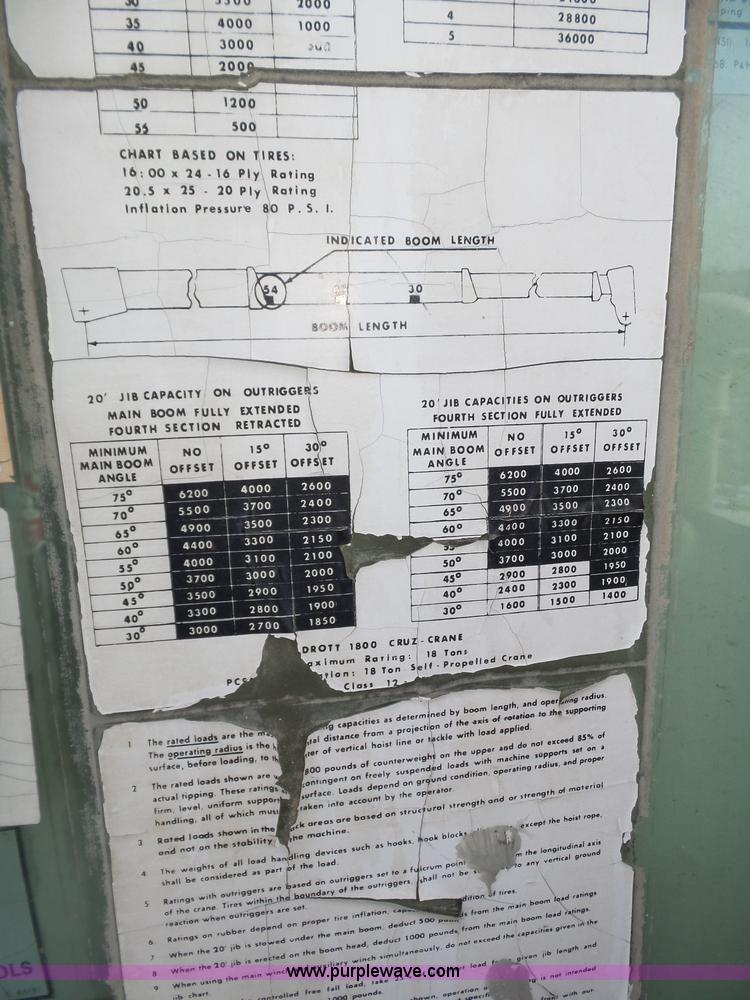 2000
35 4000 1000
40 3000
45 2000
50 1200
55 500
4 28800
5 36000
CHART BASED ON TIRES:
16:00 x 24 - 16 Ply Rating
20.5 x 25 - 20 Ply Rating
Inflation Pressure 80 P.S.I.
INDICATED BOOM LENGTH
54 30
BOOM LENGTH
20' JIB CAPACITY ON OUTRIGGERS
MAIN BOOM FULLY EXTENDED
FOURTH SECTION RETRACTED
MINIMUM MAIN BOOM ANGLE NO OFFSET 15° OFFSET 30° OFFSET
75° 6200 4000 2600
70° 5500 3700 2400
65° 4900 3500 2300
60° 4400 3300 2150
55° 4000 3100 2100
50° 3700 3000 2000
45° 3500 2900 1950
40° 3300 2800 1900
30° 3000 2700 1850
20' JIB CAPACITIES ON OUTRIGGERS
FOURTH SECTION FULLY EXTENDED
MINIMUM MAIN BOOM ANGLE NO OFFSET 15° OFFSET 30° OFFSET
75° 6200 4000 2600
70° 5500 3700 2400
65° 4900 3500 2300
60° 4400 3300 2150
55° 4000 3100 2100
50° 3700 3000 2000
45° 2900 2800 1950
40° 2400 2300 1900
30° 1600 1500 1400
DROTT 1800 CRUZ-CRANE
aximum Rating: 18 Tons
tion: 18 Ton Self-Propelled Crane
PCS Class 12-
1 The rated loads are the ma ng capacities as determined by boom length, and operating radius.
The operating radius is the h tal distance from a projection of the axis of rotation to the supporting
surface, before loading, to th ter of vertical hoist line or tackle with load applied.
2 The rated loads shown are 800 pounds of counterweight on the upper and do not exceed 85% of
actual tipping. These ratings ontingent on freely suspended loads with machine supports set on a
firm, level, uniform suppor surface. Loads depend on ground condition, operating radius, and proper
handling, all of which must taken into account by the operator.
3 Rated loads shown in the ck areas are based on structural strength and or strength of material
and not on the stability the machine.
4 The weights of all load handling devices such as hooks, hook blocks except the hoist rope,
shall be considered as part of the load.
5 Ratings with outriggers are based on outriggers set to a fulcrum poin m the longitudinal axis
of the crane. Tires within the boundary of the outriggers, shall not be to any vertical ground
reaction when outriggers are set.
6 Ratings on rubber depend on proper tire inflation, capa dition of tires.
7 When the 20' jib is stowed under the main boom, deduct 500 pounds from the main boom load ratings
8 When the 20' jib is erected on the boom head, deduct 1000 pounds from the main boom load ratings.
9 When using the main winc iliary winch simultaneously, do not exceed the capacities given in the
jib chart.
controlled free fall load, take load given jib length and
1000 pounds. shown, operation ng is not intended
OLS
www.purplewave.com